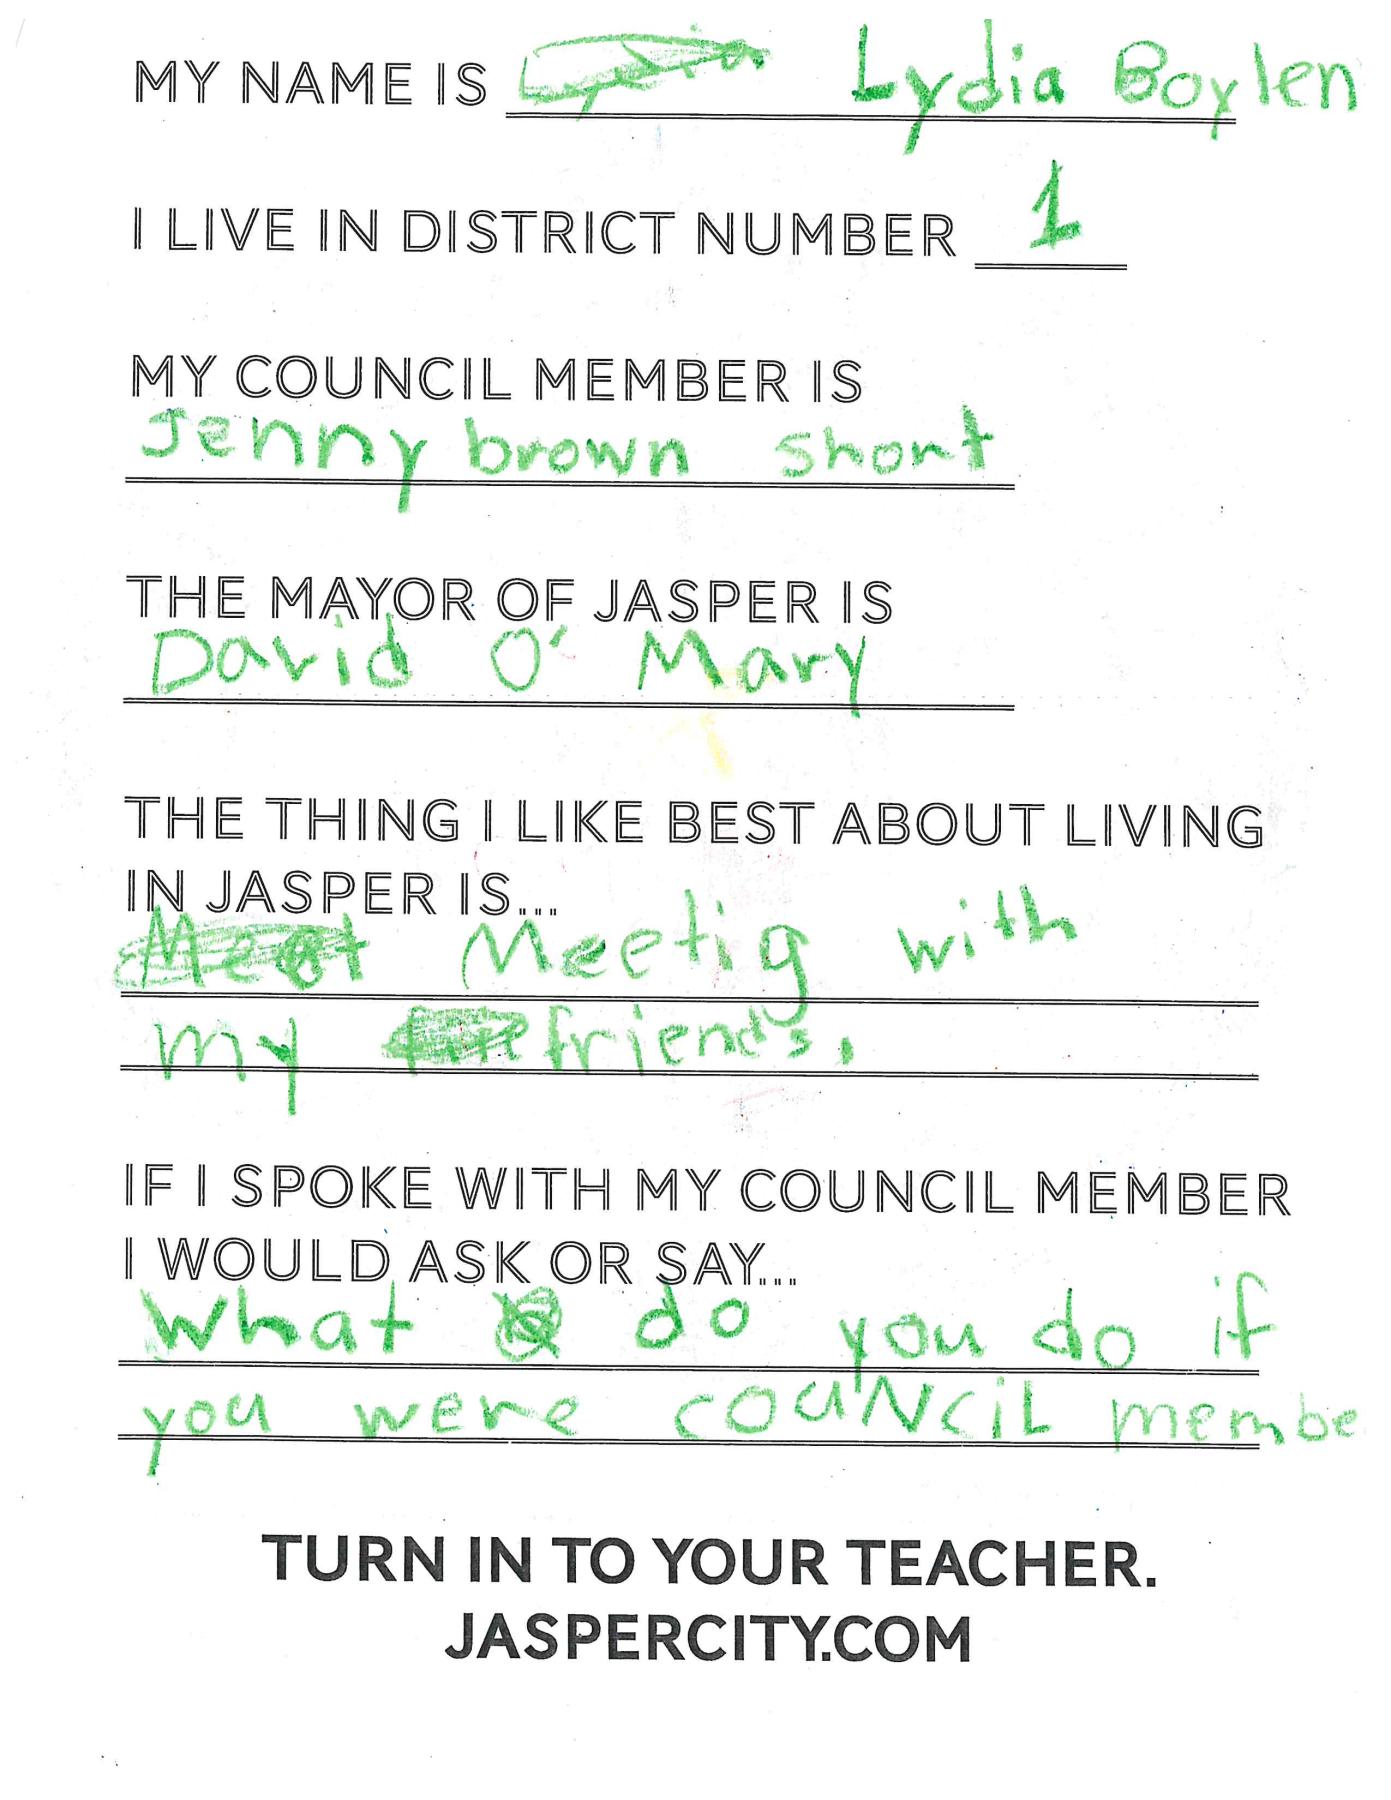 MY NAME IS Lydia Boylen
I LIVE IN DISTRICT NUMBER 1
MY COUNCIL MEMBER IS
Jenny brown short
THE MAYOR OF JASPER IS
David O' Mary
THE THING I LIKE BEST ABOUT LIVING
IN JASPER IS...
Meetig with
my friends.
IF I SPOKE WITH MY COUNCIL MEMBER
I WOULD ASK OR SAY...
What do you do if
you were coUNCiL membe
TURN IN TO YOUR TEACHER.
JASPERCITY.COM